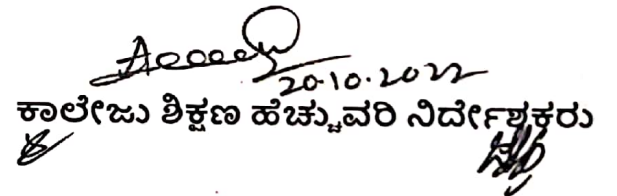 20.10.2022
ಕಾಲೇಜು ಶಿಕ್ಷಣ ಹೆಚ್ಚುವರಿ ನಿರ್ದೇಶಕರು